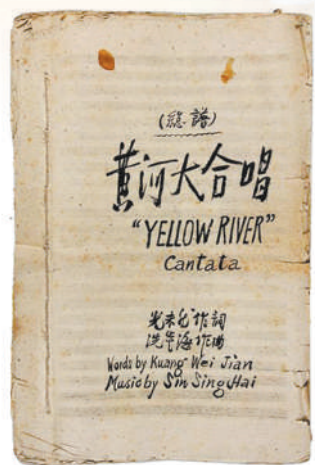 (總譜)
黃河大合唱
"YELLOW RIVER"
Cantata
光未然作詞
冼星海作曲
Words by Kuang Wei Jian
Music by Sin Sing Hai